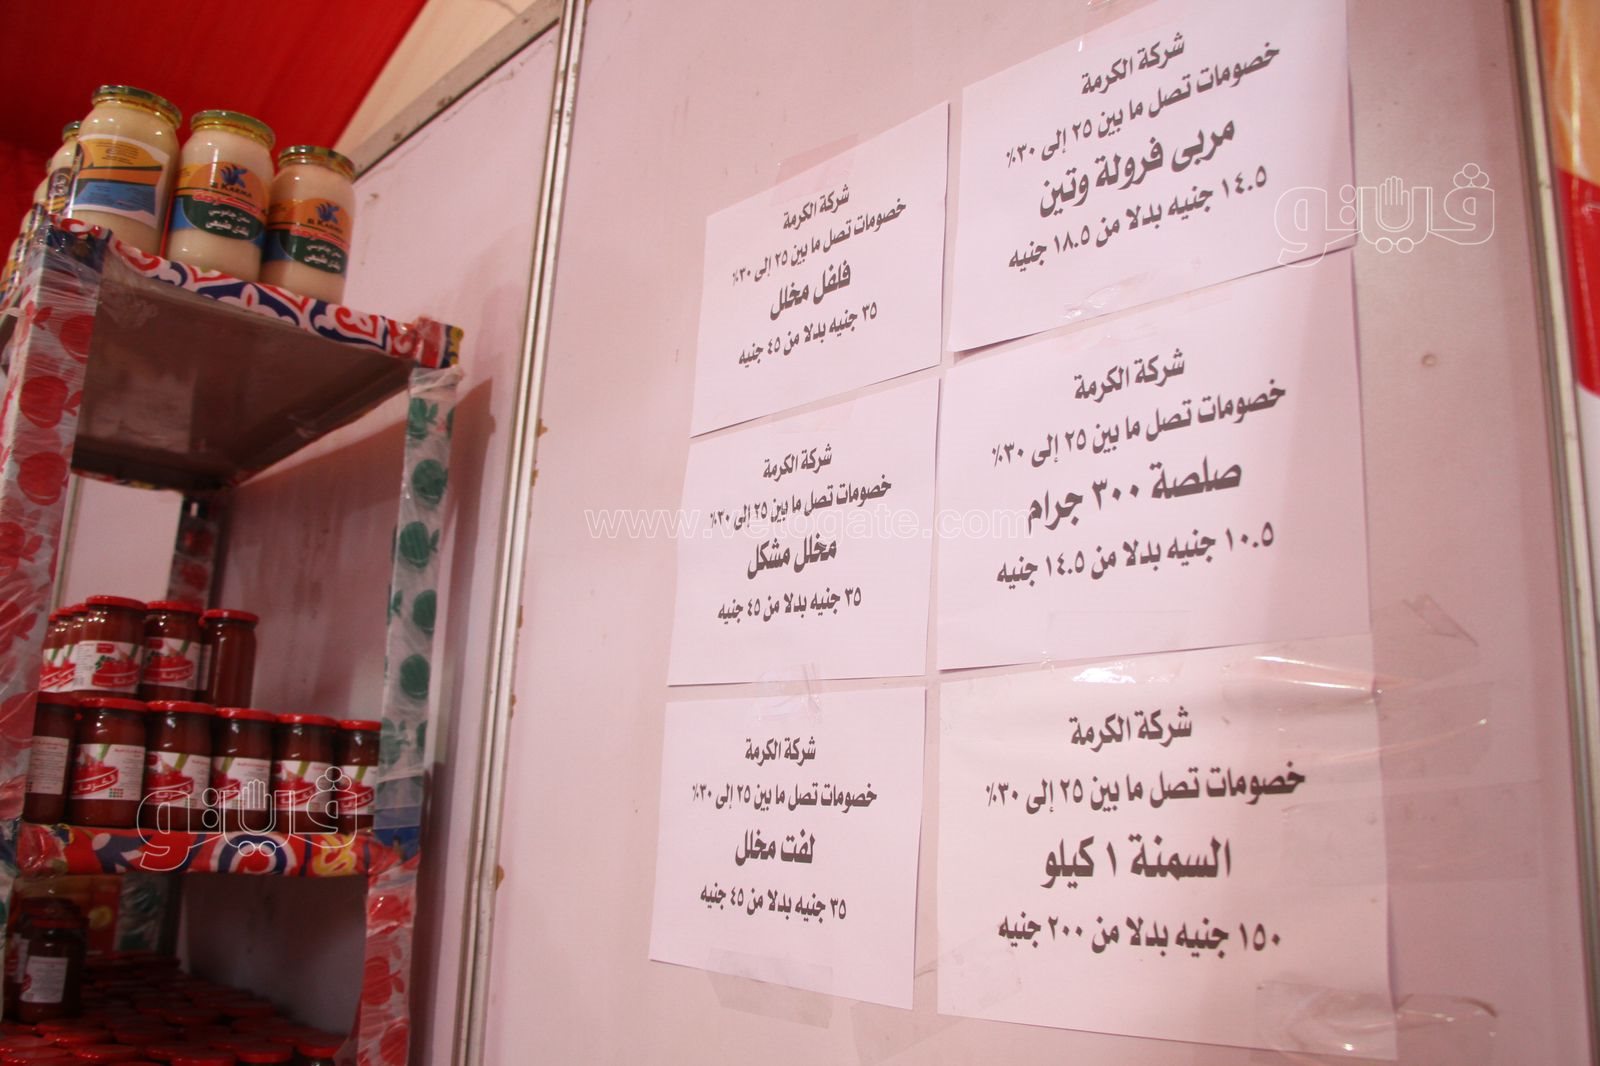 شركة الكرمة
خصومات تصل ما بين ٢٥ إلى ٣٠٪
مربى فرولة وتين
١٤.٥ جنيه بدلا من ١٨.٥ جنيه
شركة الكرمة
خصومات تصل ما بين ٢٥ إلى ٣٠٪
فلفل مخلل
٣٥ جنيه بدلا من ٤٥ جنيه
شركة الكرمة
خصومات تصل ما بين ٢٥ إلى ٣٠٪
صلصة ٣٠٠ جرام
١٠.٥ جنيه بدلا من ١٤.٥ جنيه
شركة الكرمة
خصومات تصل ما بين ٢٥ إلى ٣٠٪
مخلل مشكل
٣٥ جنيه بدلا من ٤٥ جنيه
شركة الكرمة
خصومات تصل ما بين ٢٥ إلى ٣٠٪
السمنة ١ كيلو
١٥٠ جنيه بدلا من ٢٠٠ جنيه
شركة الكرمة
خصومات تصل ما بين ٢٥ إلى ٣٠٪
لفت مخلل
٣٥ جنيه بدلا من ٤٥ جنيه
El KARMA
سمن جاموسي
بلدي طبيعي
El KARMA
سمن جاموسي
بلدي طبيعي
www.vetogate.com
ڤيتو
ڤيتو